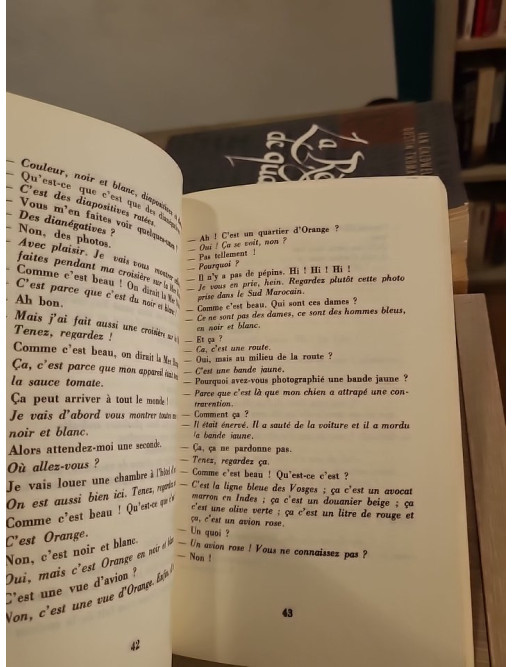 — Couleur, noir et blanc, diapositives,
— Qu'est-ce que c'est que des
— C'est des diapositives ratées.
— Vous m'en faites voir
— Des dianégatives ?
— Non, des photos.
— Avec plaisir. Je vais vous montrer
faites pendant ma croisière sur la
— Comme c'est beau ! On dirait la Mer
— C'est parce que c'est du noir et
— Ah bon.
— Mais j'ai fait aussi une croisière sur
Tenez, regardez !
Comme c'est beau, on dirait la Mer
Ça, c'est parce que mon appareil était
la sauce tomate.
Ça peut arriver à tout le monde !
Je vais d'abord vous montrer toutes
noir et blanc.
Alors attendez-moi une seconde.
Où allez-vous ?
Je vais louer une chambre à l'hôtel
On est aussi bien ici. Tenez, regardez
Comme c'est beau ! Qu'est-ce que
C'est Orange.
Non, c'est noir et blanc.
Oui, mais c'est Orange en noir et
C'est une vue d'avion ?
Non, c'est une vue d'Orange. Enfin,
42
— Ah ! C'est un quartier d'Orange ?
— Oui ! Ça se voit, non ?
— Pas tellement !
— Pourquoi ?
— Il n'y a pas de pépins. Hi ! Hi ! Hi !
— Je vous en prie, hein. Regardez plutôt cette photo
prise dans le Sud Marocain.
— Comme c'est beau. Qui sont ces dames ?
— Ce ne sont pas des dames, ce sont des hommes bleus,
en noir et blanc.
— Et ça ?
— Ça, c'est une route.
— Oui, mais au milieu de la route ?
— C'est une bande jaune.
— Pourquoi avez-vous photographié une bande jaune ?
— Parce que c'est là que mon chien a attrapé une con-
travention.
— Comment ça ?
— Il était énervé. Il a sauté de la voiture et il a mordu
la bande jaune.
— Ça, ça ne pardonne pas.
— Tenez, regardez ça.
— Comme c'est beau ! Qu'est-ce c'est ?
— C'est la ligne bleue des Vosges ; ça c'est un avocat
marron en Indes ; ça c'est un douanier beige ; ça
c'est une olive verte ; ça c'est un litre de rouge et
ça, c'est un avion rose.
— Un quoi ?
— Un avion rose ! Vous ne connaissez pas ?
— Non !
43